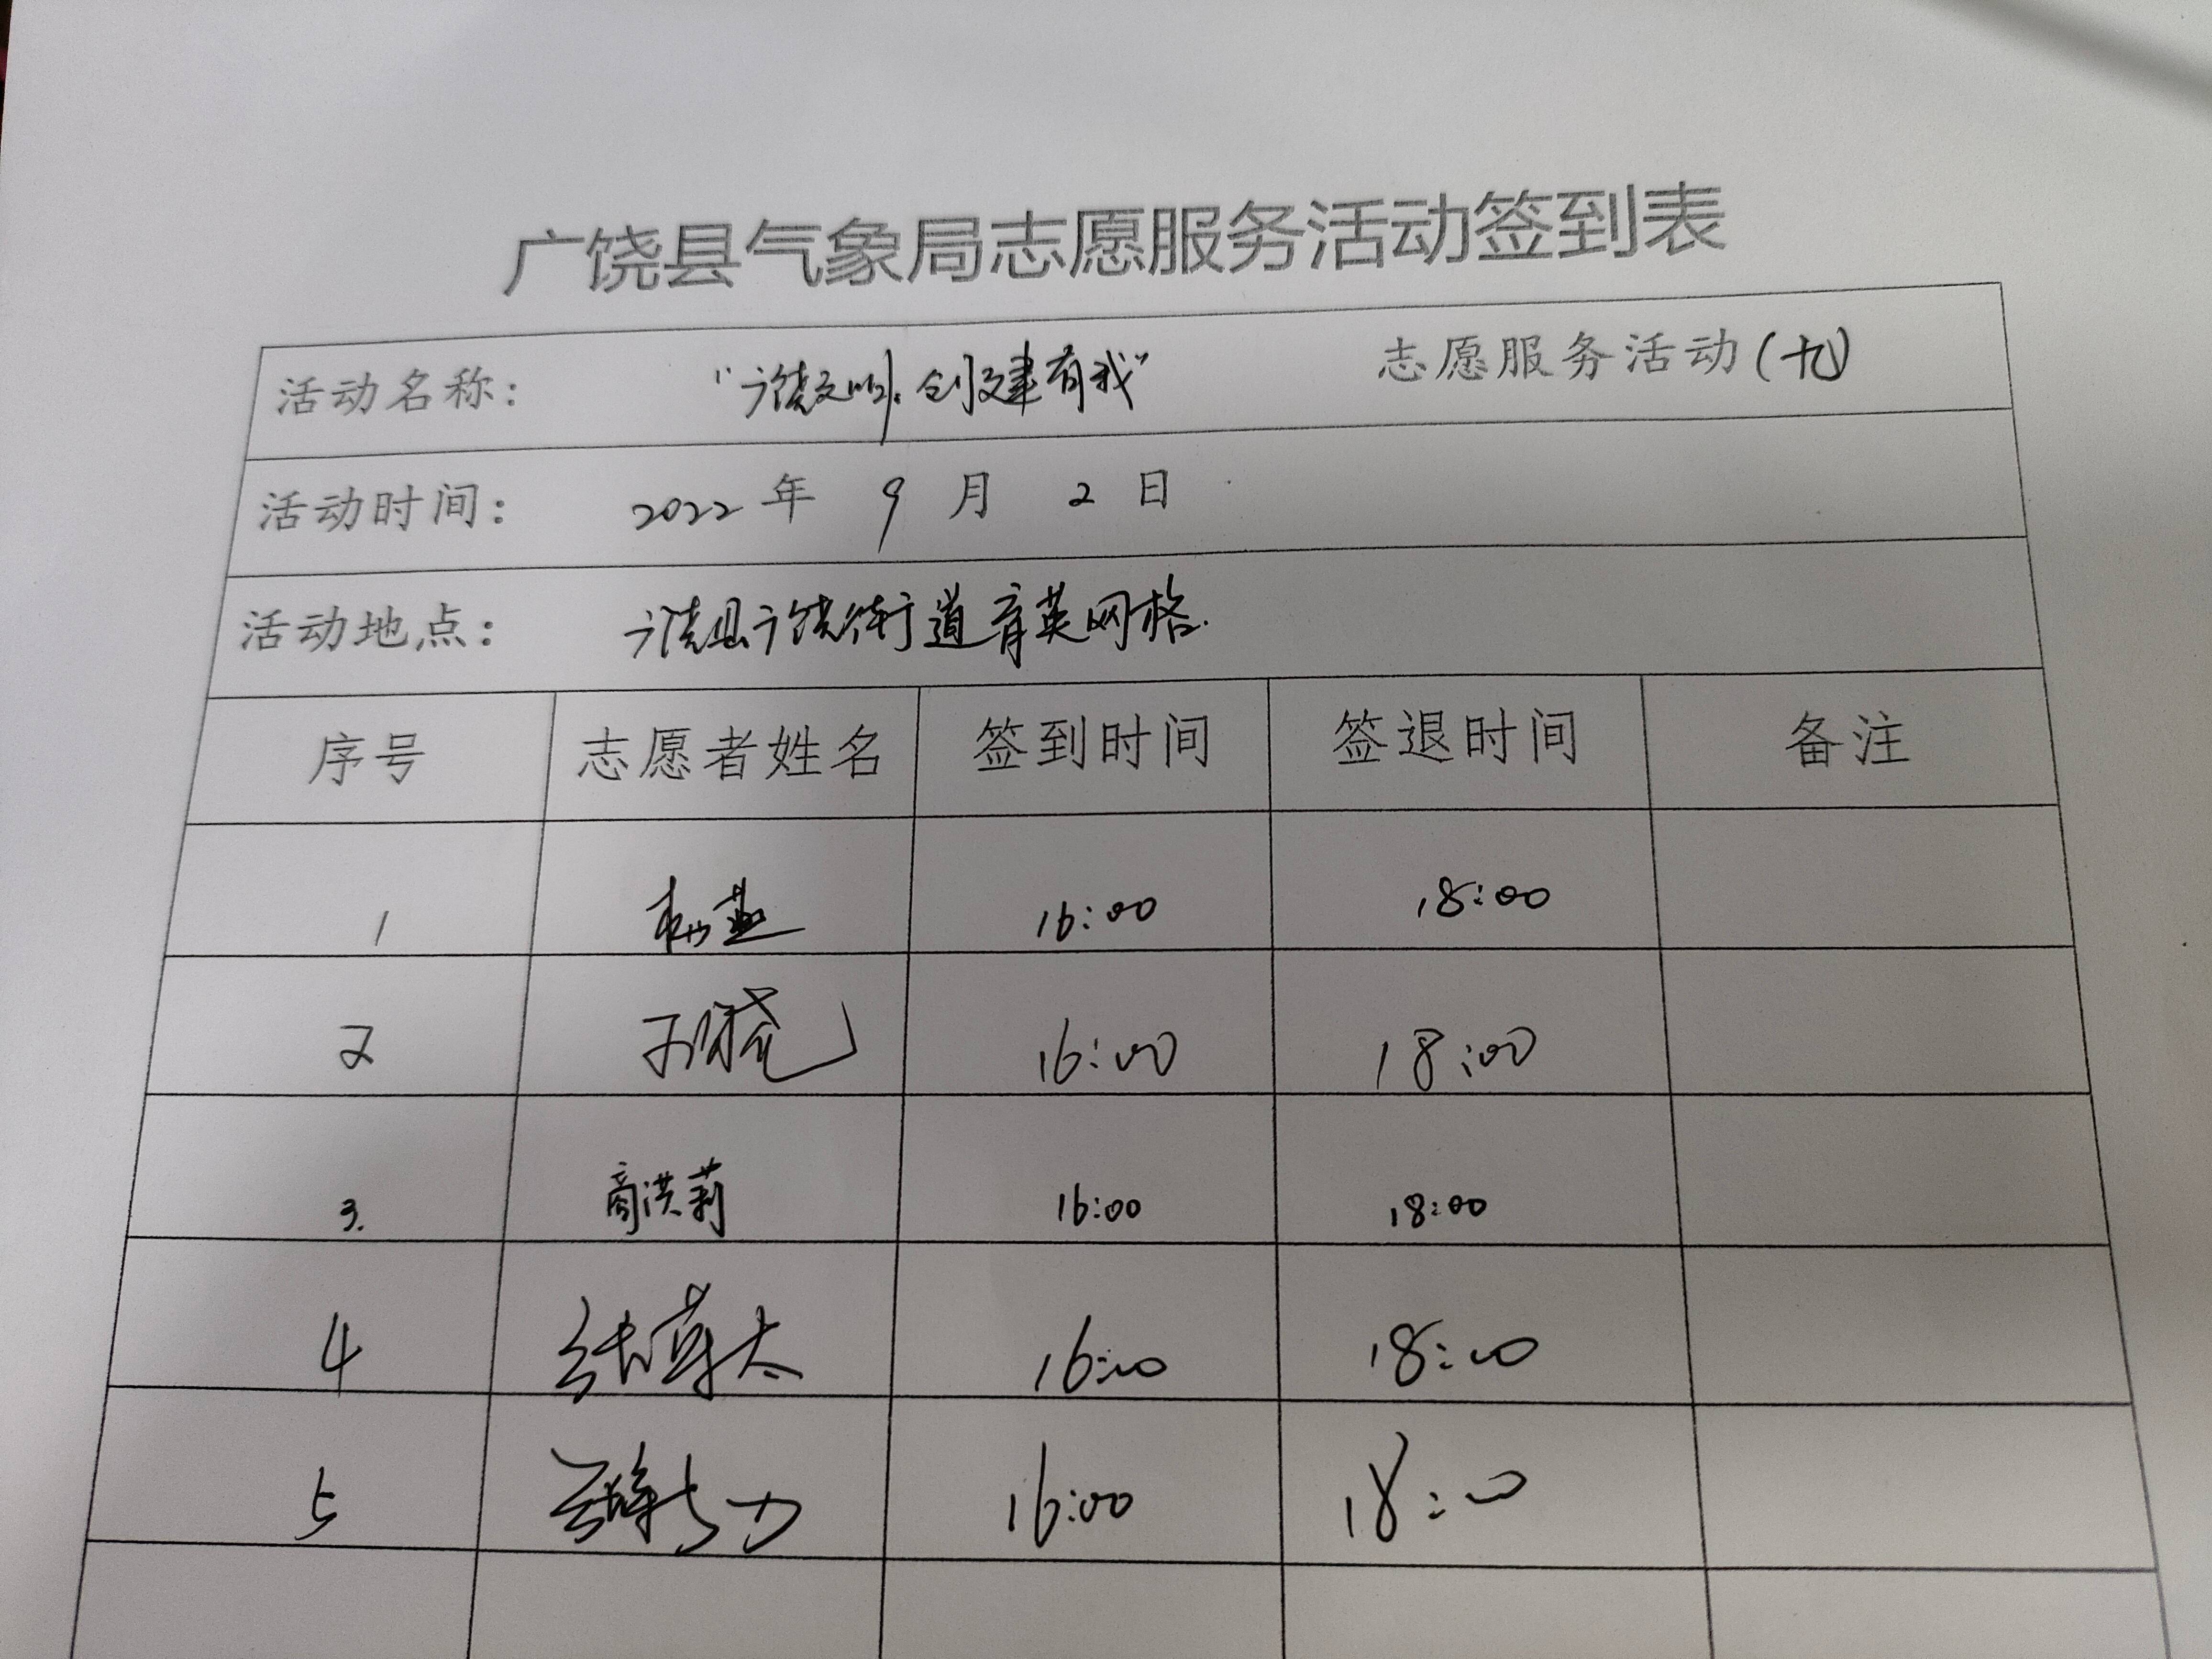 广饶县气象局志愿服务活动签到表
活动名称： “广饶文明，创建有我” 志愿服务活动(十九)
活动时间： 2022 年 9 月 2 日
活动地点： 广饶县广饶街道育英网格.
序号 志愿者姓名 签到时间 签退时间 备注
1 16:00 18:00
2 16:00 18:00
3. 商洪莉 16:00 18:00
4 16:00 18:00
5 16:00 18:00